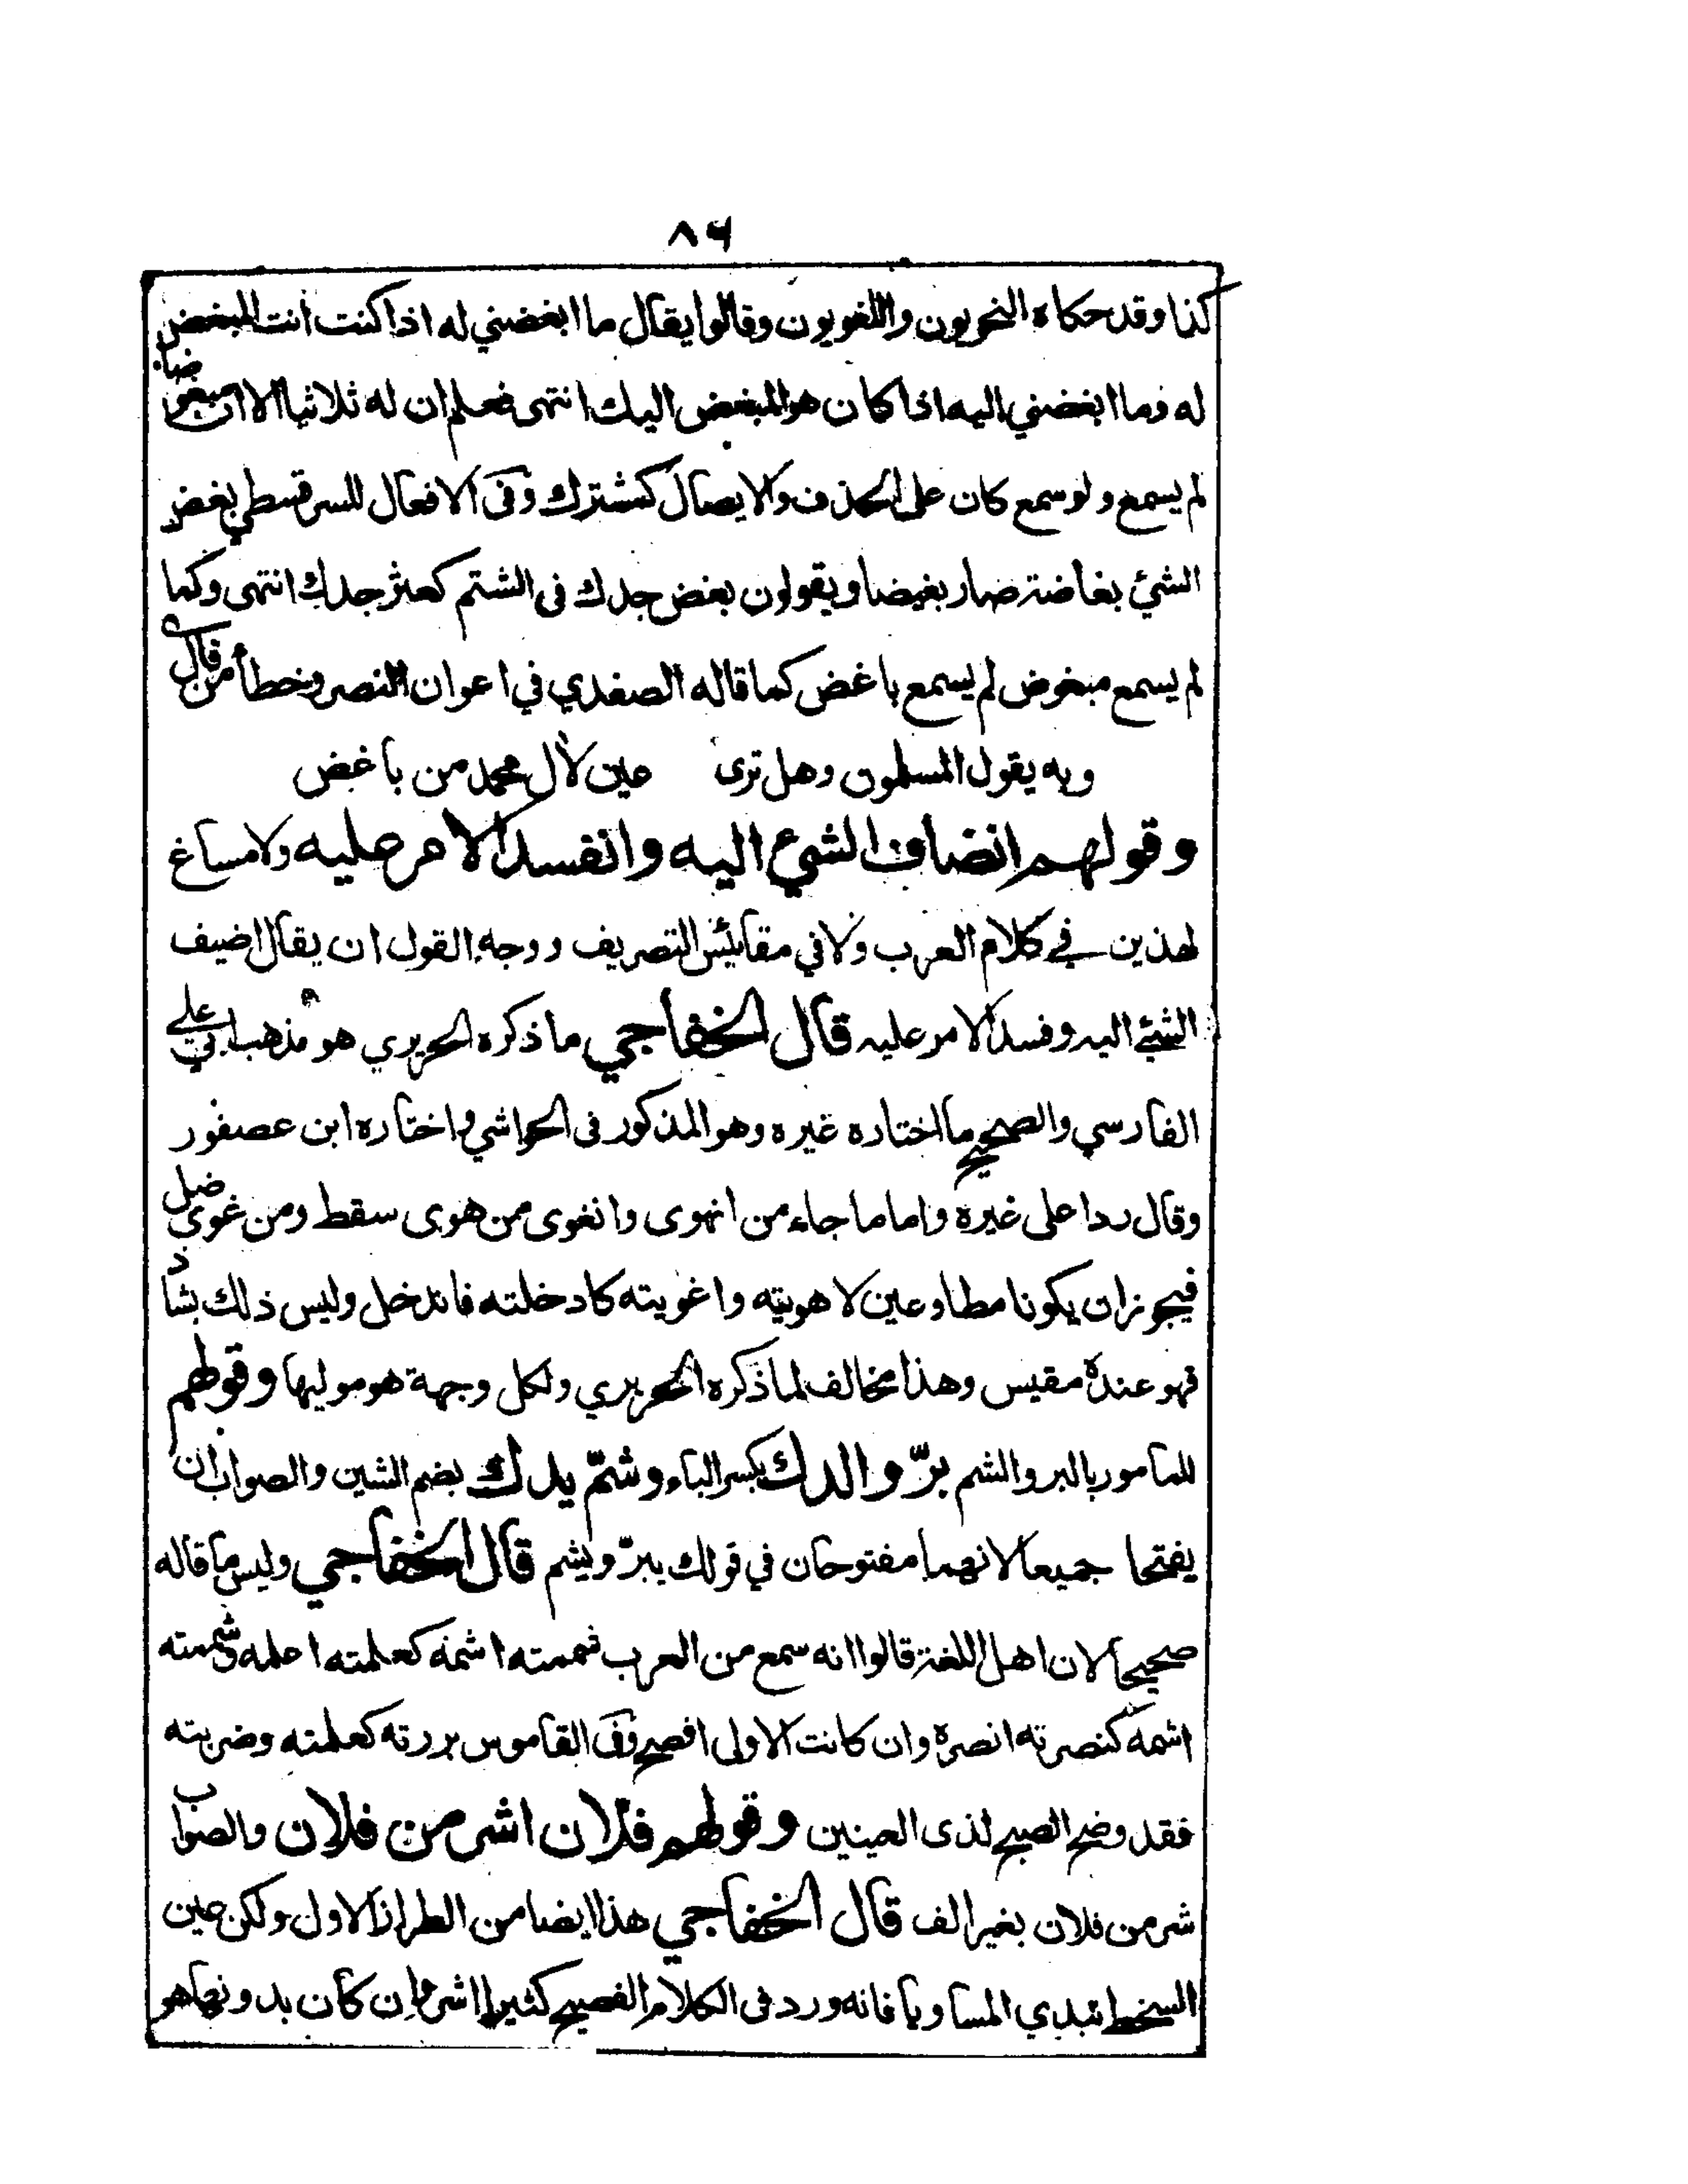 ٨٦
كذا وقد حكاه النحويون واللغويون وقالوا يقال ما ابغضني له اذا كنت انت المبغض
له وما ابغضني اليه اذا كان هو المبغض اليك انتهى فعلم ان له ثلاثيا الا ان مبغوضا
لم يسمع ولو سمع كان على الحذف والايصال كمشترك وفى الافعال للسرقسطي بغض
الشئ بغاضة صار بغيضا ويقولون بغض جدك فى الشتم كعثر جدك انتهى وكما
لم يسمع مبغوض لم يسمع باغض كما قاله الصفدي في اعوان النصر وخطأ من قال
وبه يقول المسلمون وهل ترى حين لآل محمد من باغض
وقولهم انضاف الشيء اليه وانفسد الامر عليه ولا مساغ
لهذين في كلام العرب ولا في مقائيس التصريف ووجه القول ان يقال اضيف
الشئ اليه وفسد الامر عليه قال الخفاجي ما ذكره الحريري هو مذهب ابي علي
الفارسي والصحيح ما اختاره غيره وهو المذكور فى الحواشي واختاره ابن عصفور
وقال ردا على غيره واما ما جاء من انهوى وانغوى من هوى سقط ومن غوى ضل
فيجوز ان يكونا مطاوعين لاهويته واغويته كادخلته فاندخل وليس ذلك بشاذ
فهو عنده مقيس وهذا مخالف لما ذكره الحريري ولكل وجهة هو موليها وقولهم
للمامور بالبر والشم برّ والدك بكسر الباء وشمّ يدك بضم الشين والصواب ان
يفتحا جميعا لانهما مفتوحان في قولك يبرّ ويشم قال الخفاجي وليس ما قاله
صحيحا لان اهل اللغة قالوا انه سمع من العرب شممته اشمه كعلمته اعلمه وشممته
اشمه كنصرته انصره وان كانت الاولى افصح وفى القاموس بررته كعلمته وضربته
فقد وضح الصبح لذى العينين وقولهم فلان اشر من فلان والصواب
شر من فلان بغير الف قال الخفاجي هذا ايضا من الطراز الاول ولكن عين
السخط تبدي المساويا فانه ورد فى الكلام الفصيح كثيرا اشر وان كان بدونها هو